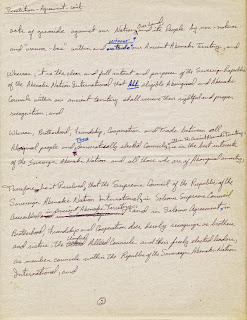 Resolution - Agreement cont.
acts of genocide against our Nation and its People by non-natives
and "wanna-bes" within and outside our Ancient Abenaki Territory, and
Whereas, it is the clear and full intent and purpose of the Sovereign Republic
of the Abenaki Nation International that All eligible Aboriginal and Abenaki
Councils within our ancient territory shall receive their rightful and proper
recognition, and
within the Ancient Abenaki Territory
Whereas, Brotherhood, Friendship, Cooperation and Trade between all
Aboriginal people and democratically elected Councils, is in the best interests
of the Sovereign Abenaki Nation and all those who are of Aboriginal ancestry,
Therefore, be it Resolved, that the Supreme Council of the Republic of the
Sovereign Abenaki Nation International, in Solemn Supreme Council
Assembled in Ancient Abenaki Territory, and in Solemn Agreement in
Brotherhood, Friendship and Cooperation does hereby recognize as brothers
and sisters the Allied Councils and their freely elected leaders,
as member councils within the Republic of the Sovereign Abenaki Nation
International, and
2